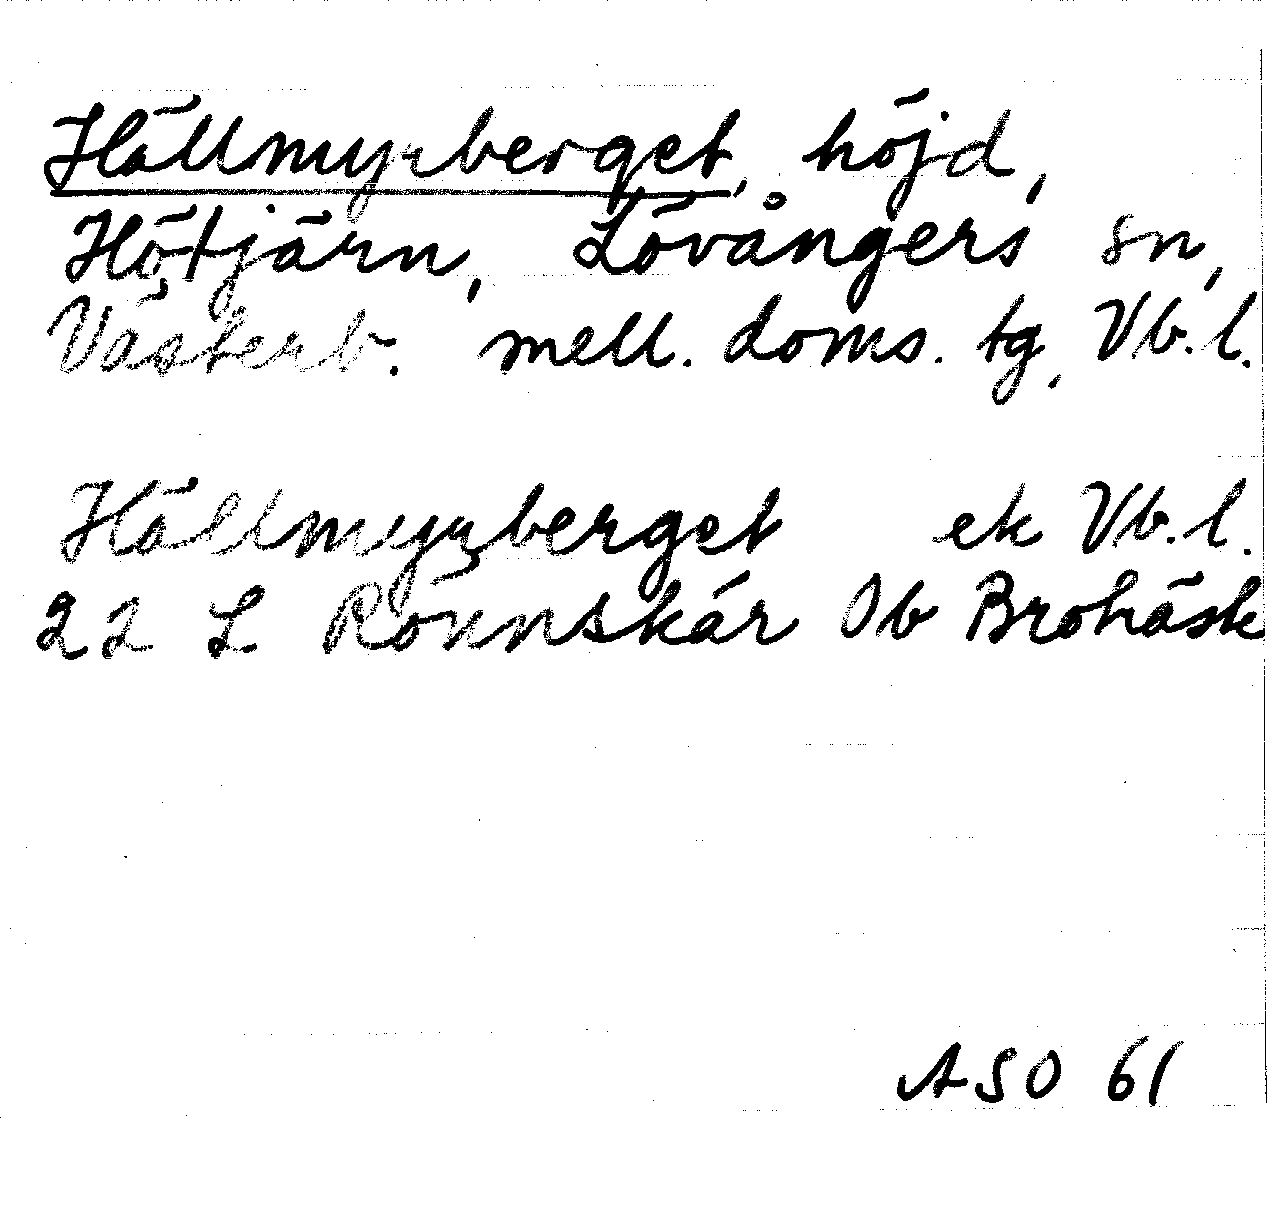 Hällmyrberget, höjd,
Hötjärn, Lövångers sn,
Västerb. mell. doms. tg, Vb. l.
Hällmyrberget ek Vb. l.
22 L Rönnskär Ob Brohäsk
ASO 61